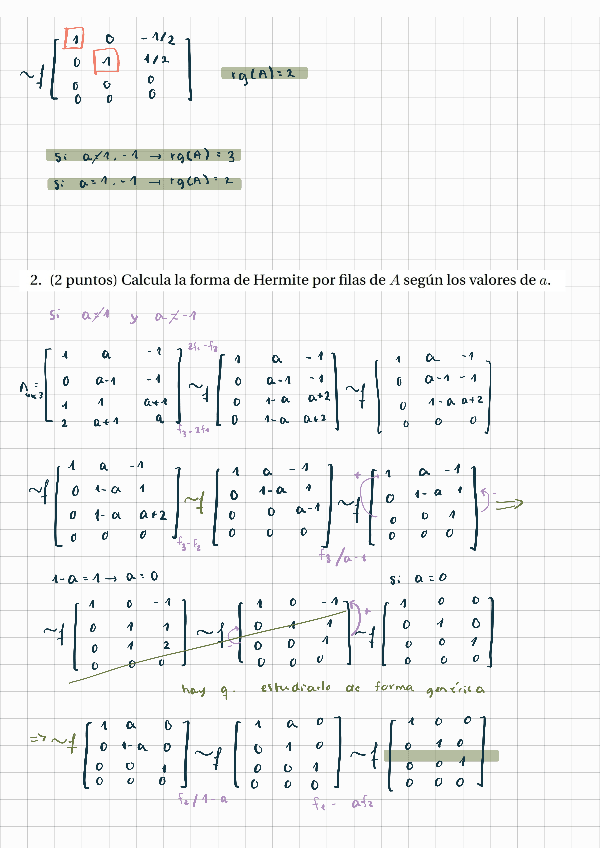 1 0 -1/2
~f 0 1 1/2
0 0 0
0 0 0
rg(A)=2
Si a≠1, -1 → rg(A) = 3
Si a=1, -1 → rg(A) = 2
2. (2 puntos) Calcula la forma de Hermite por filas de A según los valores de a.
Si a≠1 y a≠-1
1 a -1
0 a-1 -1
1 1 a+1
2 a+1 a
f3-2f1
~f
1 a -1
0 a-1 -1
0 1-a a+2
0 1-a a+2
~f
1 a -1
0 a-1 -1
0 1-a a+2
0 0 0
~f
1 a -1
0 1-a 1
0 1-a a+2
0 0 0
f3-f2
~f
1 a -1
0 1-a 1
0 0 a-1
0 0 0
f3/a-1
~f
1 a -1
0 1-a 1
0 0 1
0 0 0
⇒
1-a=1 → a=0
si a=0
~f
1 0 -1
0 1 1
0 1 2
0 0 0
~f
1 0 -1
0 1 1
0 0 1
0 0 0
~f
1 0 0
0 1 0
0 0 1
0 0 0
hay q. estudiarlo de forma genérica
⇒ ~f
1 a 0
0 1-a 0
0 0 1
0 0 0
f2/1-a
~f
1 a 0
0 1 0
0 0 1
0 0 0
f1 - af2
~f
1 0 0
0 1 0
0 0 1
0 0 0